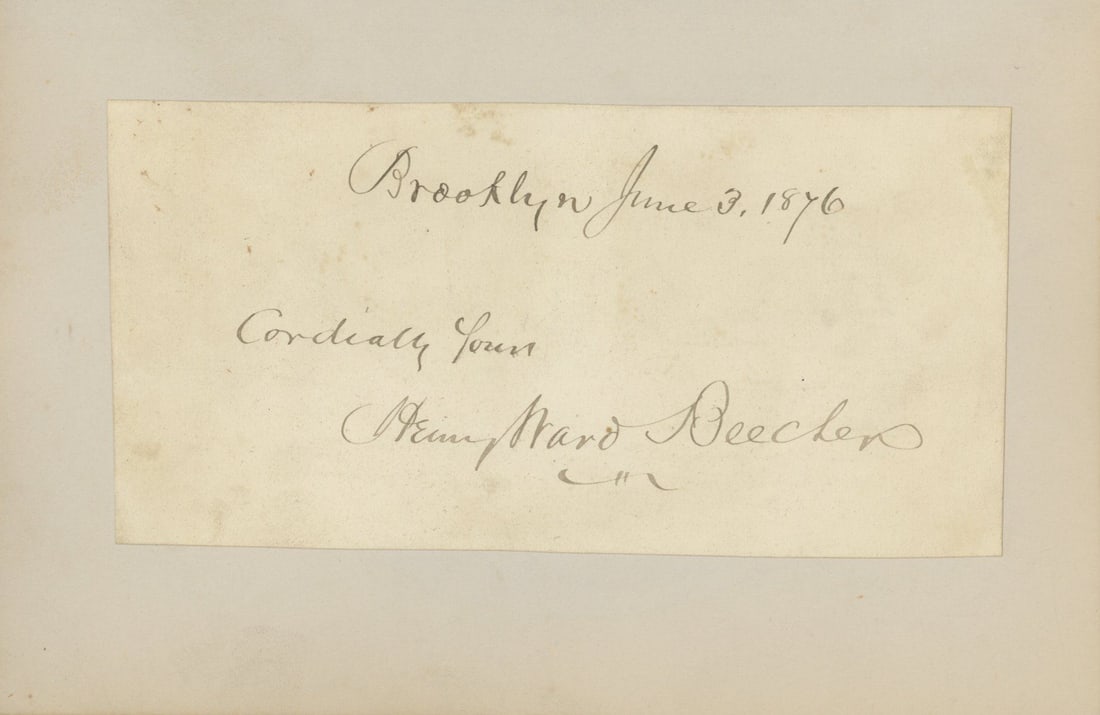 Brooklyn June 3. 1876
Cordially Yours
Henry Ward Beecher